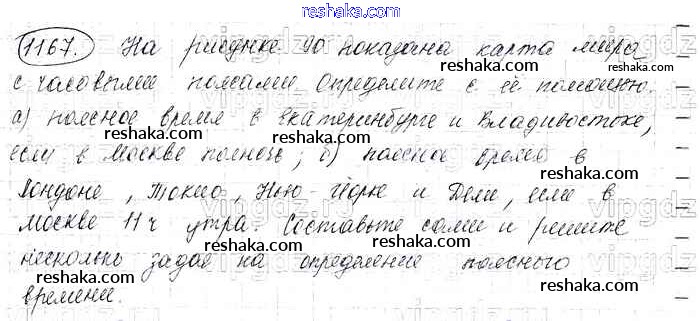 reshaka.com
1167. На рисунке 90 показана карта мира
с часовыми поясами. Определите с её помощью:
а) поясное время в Екатеринбурге и Владивостоке,
если в Москве полночь; б) поясное время в
Лондоне, Токио, Нью-Йорке и Дели, если в
Москве 11 ч утра. Составьте сами и решите
несколько задач на определение поясного
времени.
reshaka.com
reshaka.com
reshaka.com
reshaka.com
reshaka.com
reshaka.com
reshaka.com
reshaka.com
reshaka.com
reshaka.com